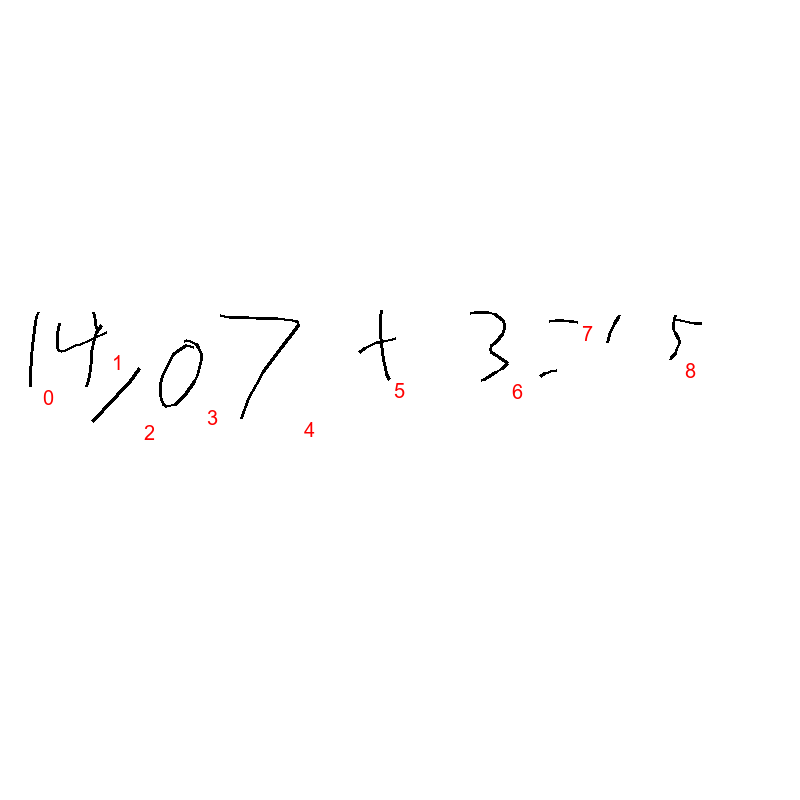 14,07 + 3 = 15
0 1 2 3 4 5 6 7 8